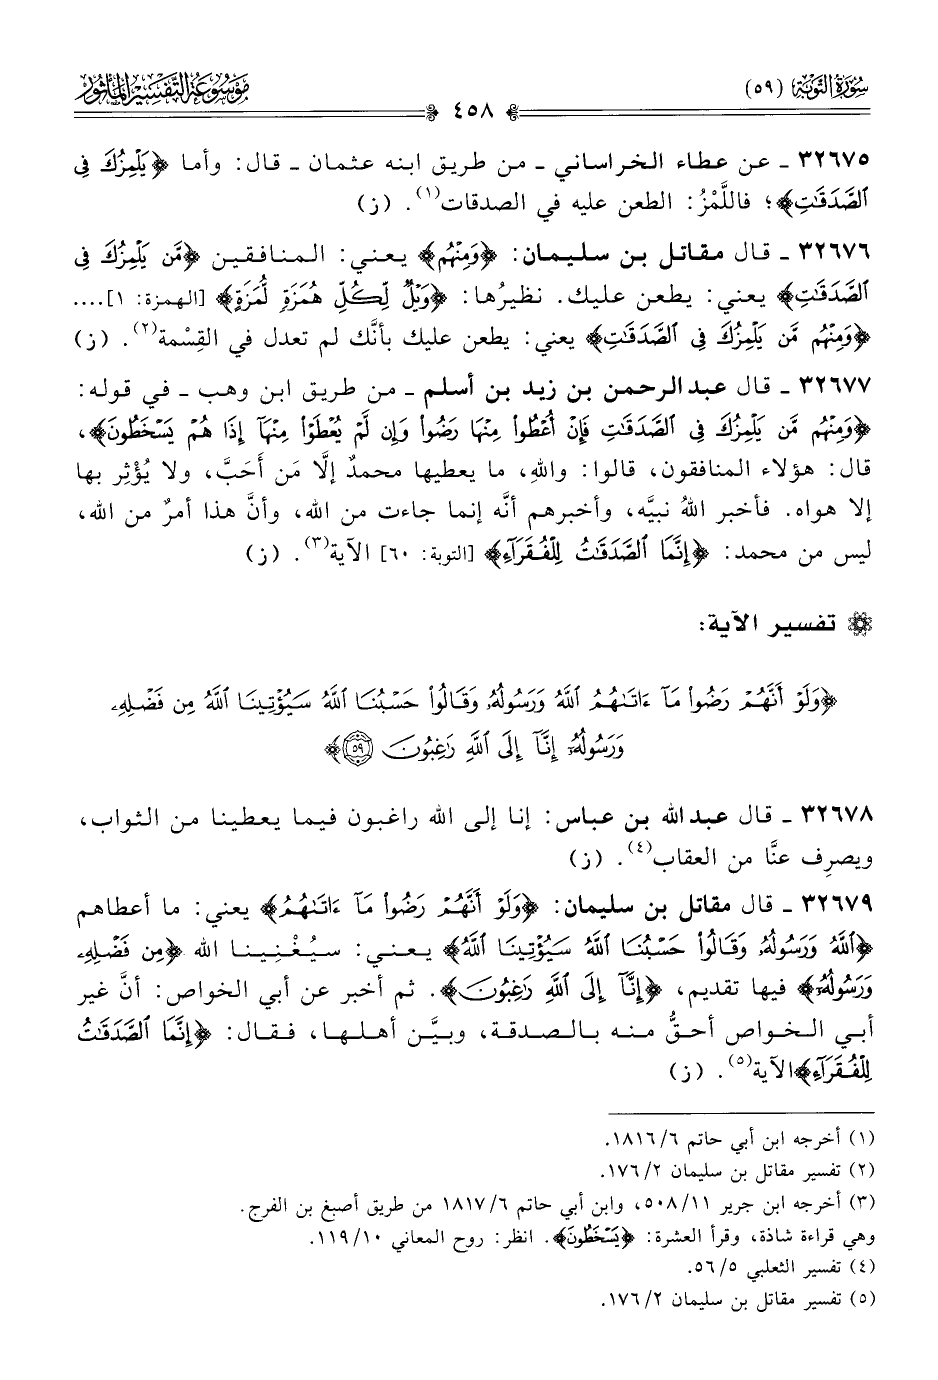 سُورَةُ التَّوْبَةِ (٥٩)
٤٥٨
مَوْسُوعَةُ التَّفْسِيرِ المَأْثُور
٣٢٦٧٥ ـ عن عطاء الخراساني ـ من طريق ابنه عثمان ـ قال: وأما ﴿يَلْمِزُكَ فِى
ٱلصَّدَقَٰتِ﴾؛ فاللَّمْزُ: الطعن عليه في الصدقات(١). (ز)
٣٢٦٧٦ ـ قال مقاتل بن سليمان: ﴿وَمِنْهُم﴾ يعني: المنافقين ﴿مَّن يَلْمِزُكَ فِى
ٱلصَّدَقَٰتِ﴾ يعني: يطعن عليك. نظيرُها: ﴿وَيْلٌ لِّكُلِّ هُمَزَةٍ لُّمَزَةٍ﴾ [الهمزة: ١]....
﴿وَمِنْهُم مَّن يَلْمِزُكَ فِى ٱلصَّدَقَٰتِ﴾ يعني: يطعن عليك بأنَّك لم تعدل في القِسْمة(٢). (ز)
٣٢٦٧٧ ـ قال عبد الرحمن بن زيد بن أسلم ـ من طريق ابن وهب ـ في قوله:
﴿وَمِنْهُم مَّن يَلْمِزُكَ فِى ٱلصَّدَقَٰتِ فَإِنْ أُعْطُوا۟ مِنْهَا رَضُوا۟ وَإِن لَّمْ يُعْطَوْا۟ مِنْهَآ إِذَا هُمْ يَسْخَطُونَ﴾،
قال: هؤلاء المنافقون، قالوا: واللهِ، ما يعطيها محمدٌ إلَّا مَن أَحَبَّ، ولا يُؤْثِر بها
إلا هواه. فأخبر اللهُ نبيَّه، وأخبرهم أنَّه إنما جاءت من الله، وأنَّ هذا أمرٌ من الله،
ليس من محمد: ﴿إِنَّمَا ٱلصَّدَقَٰتُ لِلْفُقَرَآءِ﴾ [التوبة: ٦٠] الآية(٣). (ز)
تفسير الآية:
﴿وَلَوْ أَنَّهُمْ رَضُوا۟ مَآ ءَاتَىٰهُمُ ٱللَّهُ وَرَسُولُهُۥ وَقَالُوا۟ حَسْبُنَا ٱللَّهُ سَيُؤْتِينَا ٱللَّهُ مِن فَضْلِهِۦ
وَرَسُولُهُۥٓ إِنَّآ إِلَى ٱللَّهِ رَٰغِبُونَ ٥٩﴾
٣٢٦٧٨ ـ قال عبد الله بن عباس: إنا إلى الله راغبون فيما يعطينا من الثواب،
ويصرِف عنَّا من العقاب(٤). (ز)
٣٢٦٧٩ ـ قال مقاتل بن سليمان: ﴿وَلَوْ أَنَّهُمْ رَضُوا۟ مَآ ءَاتَىٰهُمُ﴾ يعني: ما أعطاهم
﴿ٱللَّهُ وَرَسُولُهُۥ وَقَالُوا۟ حَسْبُنَا ٱللَّهُ سَيُؤْتِينَا ٱللَّهُ﴾ يعني: سيُغْنِينا الله ﴿مِن فَضْلِهِۦ
وَرَسُولُهُۥٓ﴾ فيها تقديم، ﴿إِنَّآ إِلَى ٱللَّهِ رَٰغِبُونَ﴾. ثم أخبر عن أبي الخواص: أنَّ غير
أبي الخواص أحقُّ منه بالصدقة، وبيَّن أهلها، فقال: ﴿إِنَّمَا ٱلصَّدَقَٰتُ
لِلْفُقَرَآءِ﴾الآية(٥). (ز)
(١) أخرجه ابن أبي حاتم ١٨١٦/٦.
(٢) تفسير مقاتل بن سليمان ١٧٦/٢.
(٣) أخرجه ابن جرير ٥٠٨/١١، وابن أبي حاتم ١٨١٧/٦ من طريق أصبغ بن الفرج.
وهي قراءة شاذة، وقرأ العشرة: ﴿يَسْخَطُونَ﴾. انظر: روح المعاني ١١٩/١٠.
(٤) تفسير الثعلبي ٥٦/٥.
(٥) تفسير مقاتل بن سليمان ١٧٦/٢.